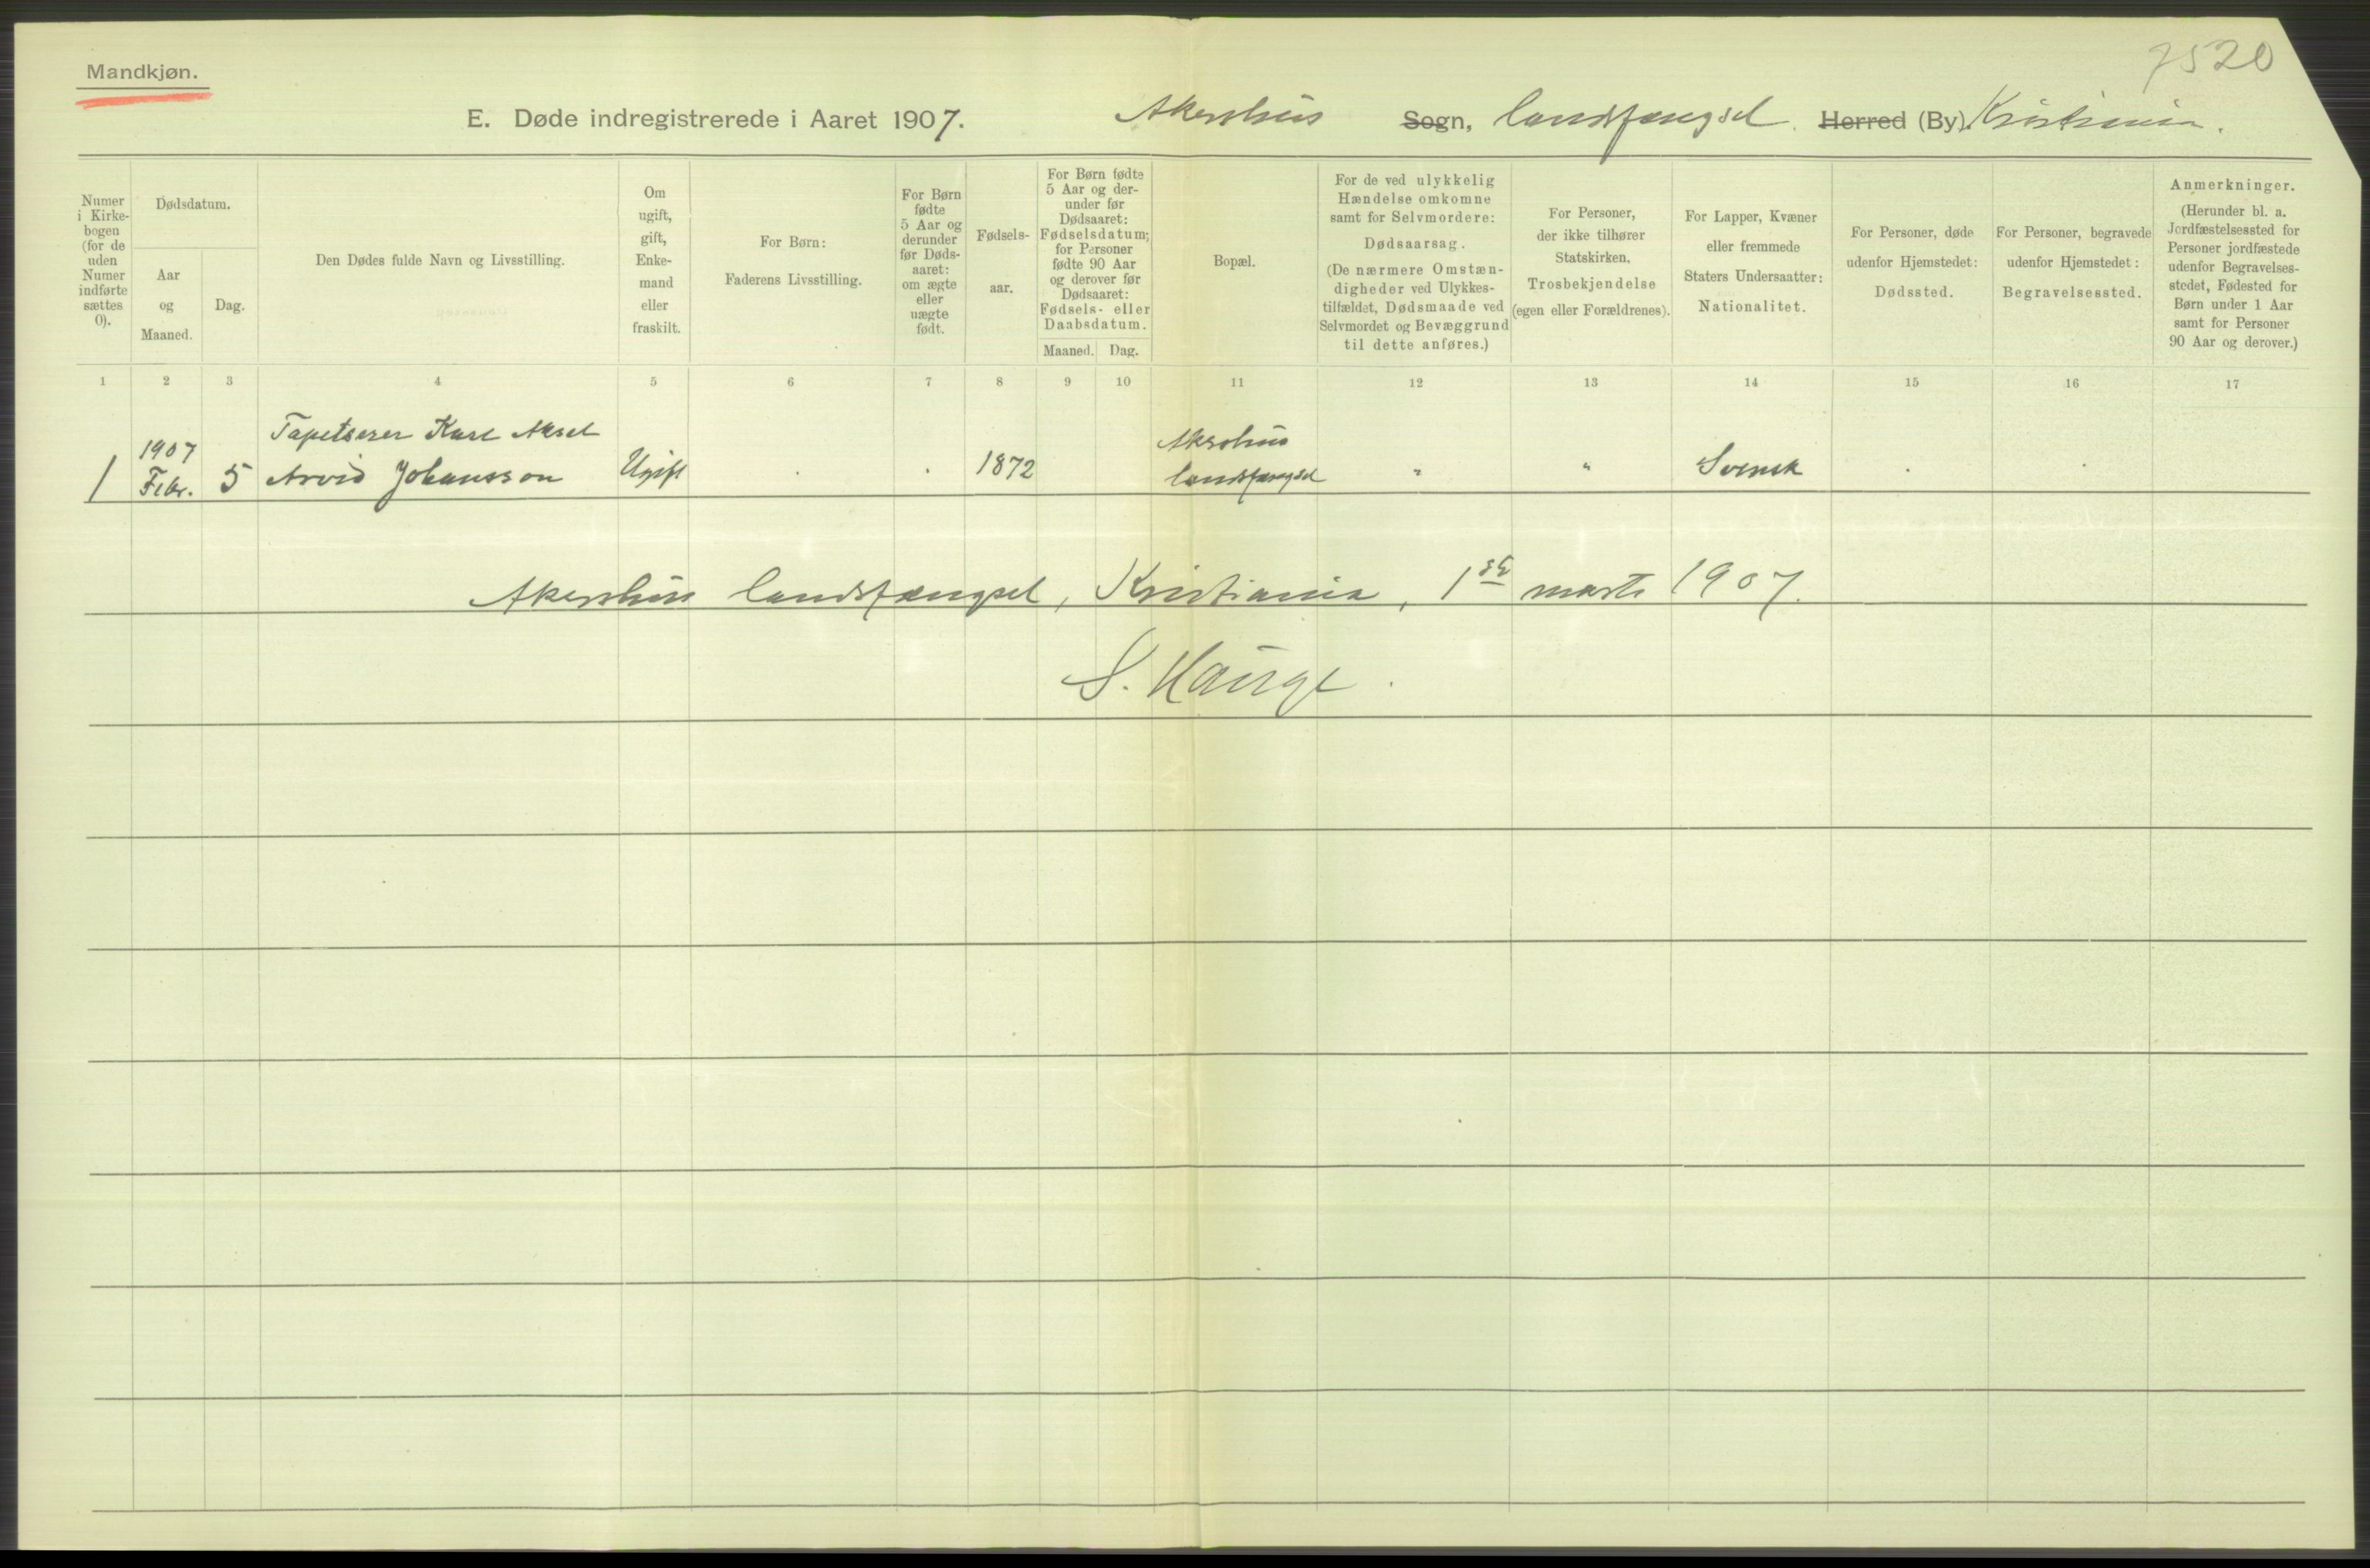 7520
Mandkjøn.
E. Døde indregistrerede i Aaret 1907. Akershus Sogn, landsfængsel. Herred (By) Kristiania.
Numer i Kirkebogen (for de uden Numer indførte sættes 0).
Dødsdatum.
Aar og Maaned.
Dag.
Den Dødes fulde Navn og Livsstilling.
Om ugift, gift, Enkemand eller fraskilt.
For Børn: Faderens Livsstilling.
For Børn fødte 5 Aar og derunder før Dødsaaret: om ægte eller uægte født.
Fødselsaar.
For Børn fødte 5 Aar og derunder før Dødsaaret: Fødselsdatum; for Personer fødte 90 Aar og derover før Dødsaaret: Fødsels- eller Daabsdatum.
Maaned. Dag.
Bopæl.
For de ved ulykkelig Hændelse omkomne samt for Selvmordere: Dødsaarsag. (De nærmere Omstændigheder ved Ulykkestilfældet, Dødsmaade ved Selvmordet og Bevæggrund til dette anføres.)
For Personer, der ikke tilhører Statskirken, Trosbekjendelse (egen eller Forældrenes).
For Lapper, Kvæner eller fremmede Staters Undersaatter: Nationalitet.
For Personer, døde udenfor Hjemstedet: Dødssted.
For Personer, begravede udenfor Hjemstedet: Begravelsessted.
Anmerkninger. (Herunder bl. a. Jordfæstelsessted for Personer jordfæstede udenfor Begravelsesstedet, Fødested for Børn under 1 Aar samt for Personer 90 Aar og derover.)
1 2 3 4 5 6 7 8 9 10 11 12 13 14 15 16 17
1907 Tapetserer Karl Aksel Akershus
1 Febr. 5 Arvid Johansson Ugift . . 1872 landsfængsel " " Svensk . .
Akershus landsfængsel, Kristiania, 1ste marts 1907.
S. Hauge.